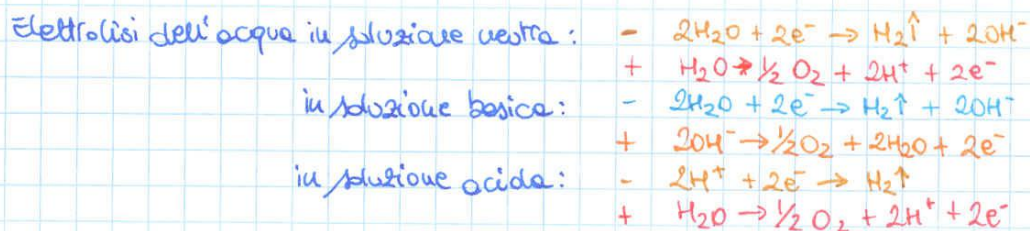 Elettrolisi dell'acqua in soluzione neutra: - 2H₂O + 2e⁻ → H₂↑ + 2OH⁻
+ H₂O → ½ O₂ + 2H⁺ + 2e⁻
in soluzione basica: - 2H₂O + 2e⁻ → H₂↑ + 2OH⁻
+ 2OH⁻ → ½O₂ + 2H₂O + 2e⁻
in soluzione acida: - 2H⁺ + 2e⁻ → H₂↑
+ H₂O → ½ O₂ + 2H⁺ + 2e⁻